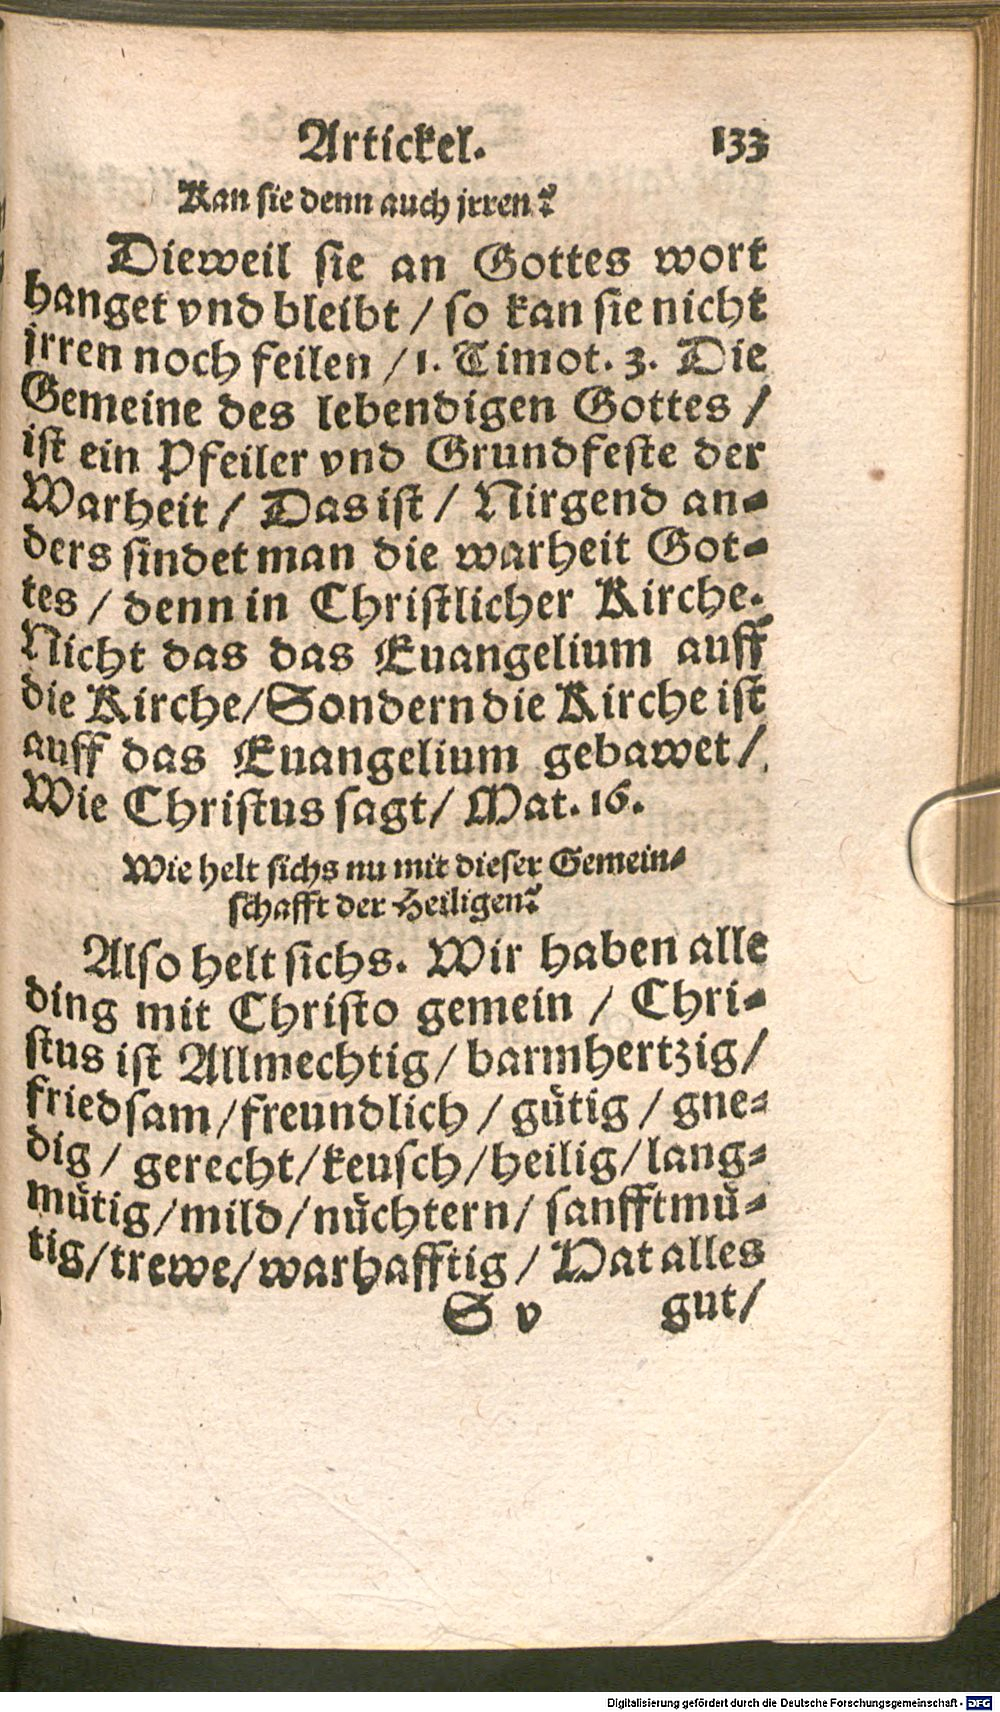 Artickel. 133
Kan sie denn auch jrren?
Dieweil sie an Gottes wort
hanget vnd bleibt / so kan sie nicht
jrren noch feilen / 1. Timot. 3. Die
Gemeine des lebendigen Gottes /
ist ein Pfeiler vnd Grundfeste der
Warheit / Das ist / Nirgend an-
ders findet man die warheit Got-
tes / denn in Christlicher Kirche.
Nicht das das Euangelium auff
die Kirche / Sondern die Kirche ist
auff das Euangelium gebawet /
Wie Christus sagt / Mat. 16.
Wie helt sichs nu mit dieser Gemein-
schafft der Heiligen?
Also helt sichs. Wir haben alle
ding mit Christo gemein / Chri-
stus ist Allmechtig / barmhertzig /
friedsam / freundlich / gütig / gne-
dig / gerecht / keusch / heilig / lang-
mütig / mild / nüchtern / sanfftmü-
tig / trewe / warhafftig / Hat alles
S v gut /
Digitalisierung gefördert durch die Deutsche Forschungsgemeinschaft - DFG